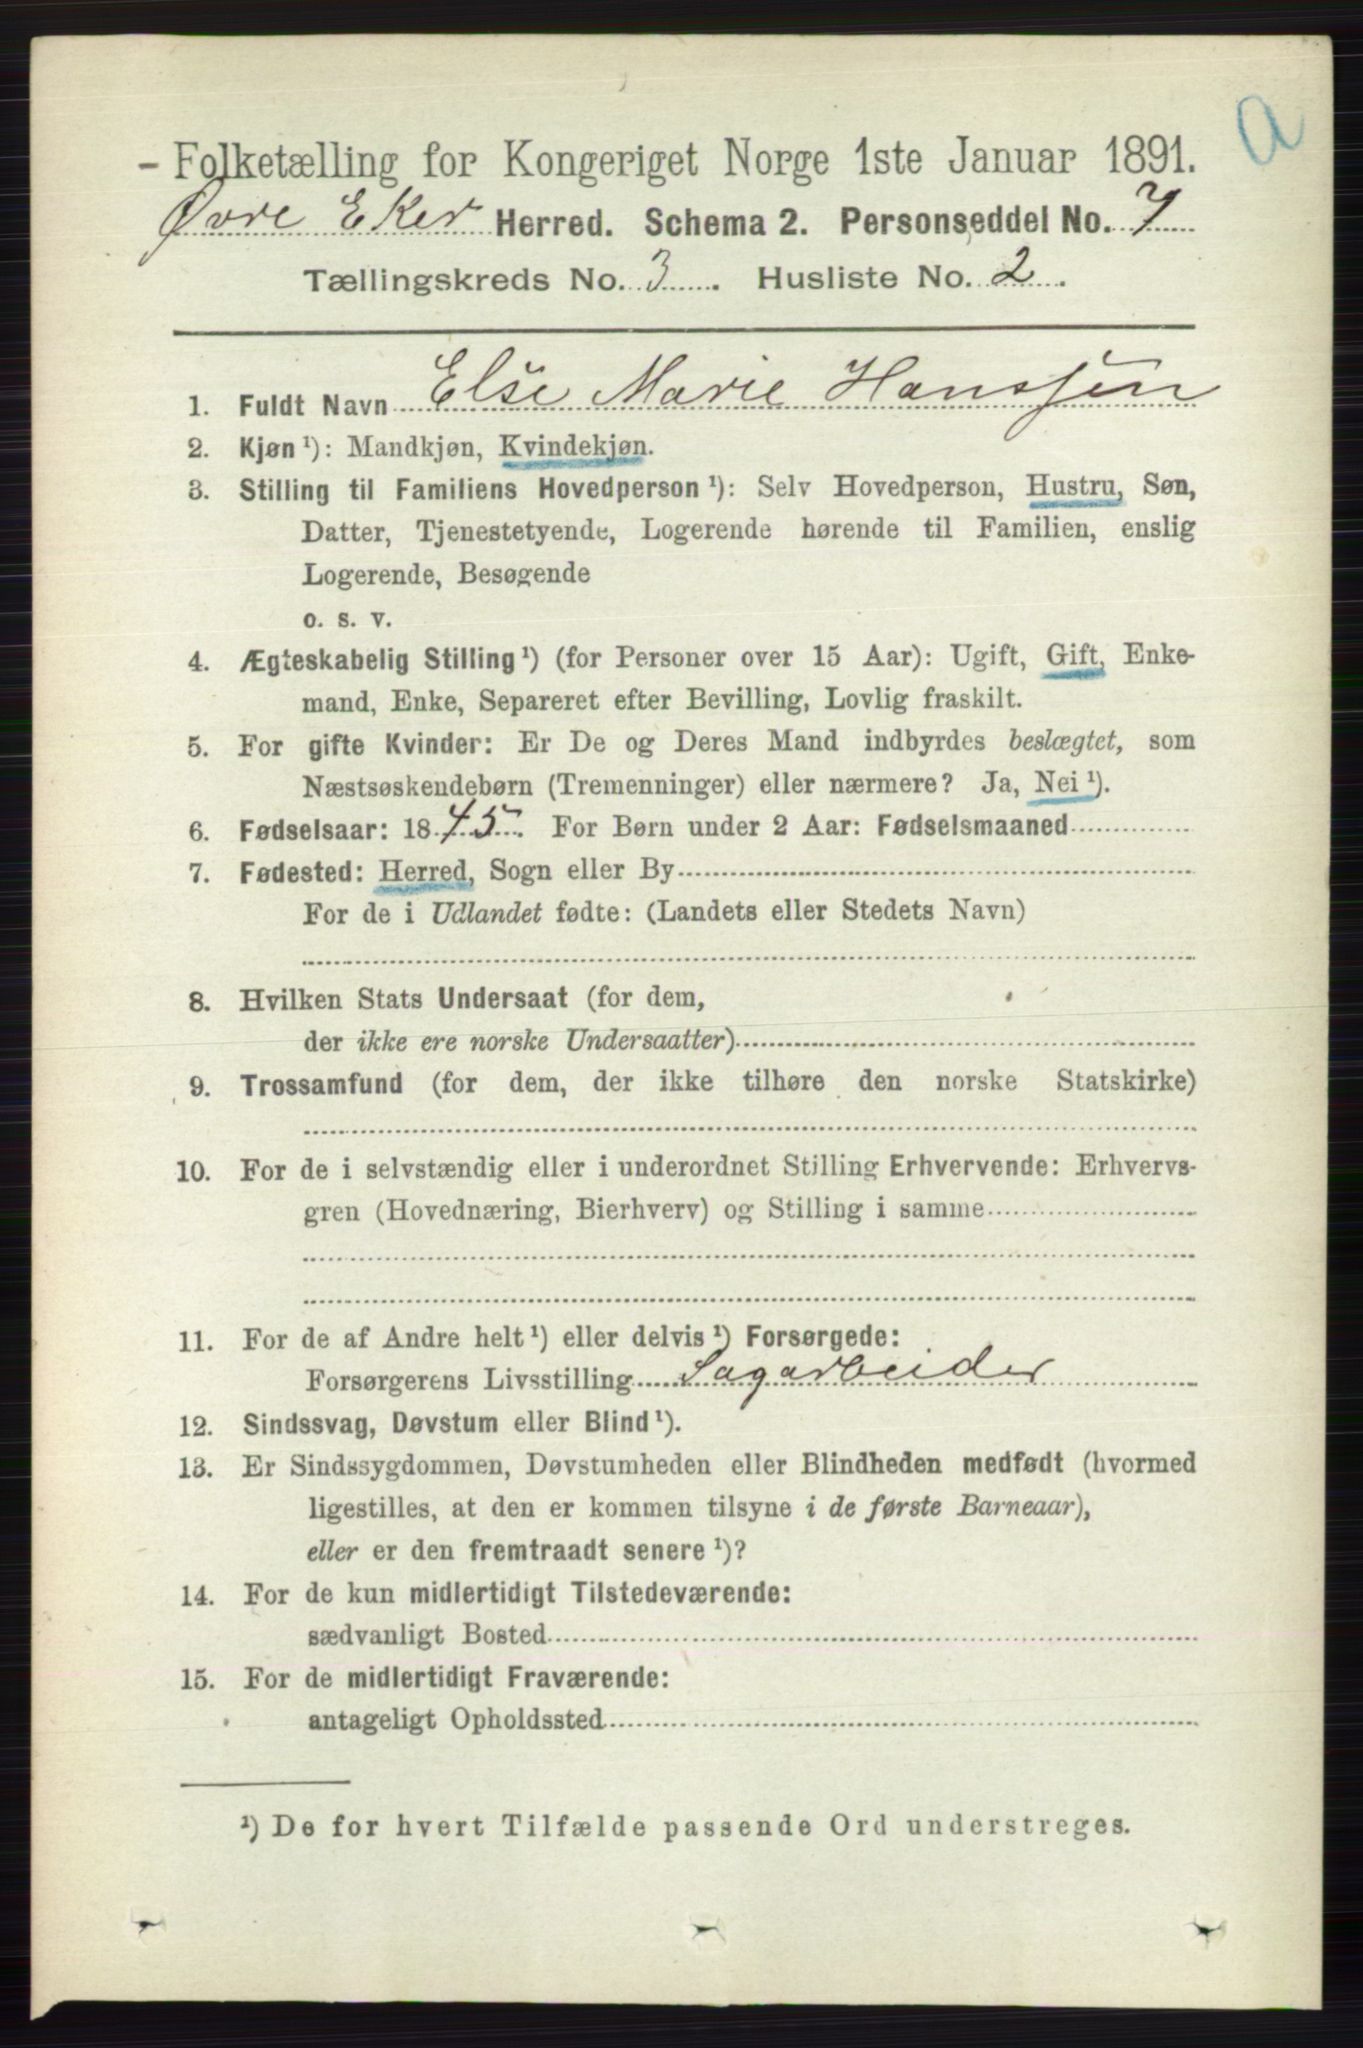 a
- Folketælling for Kongeriget Norge 1ste Januar 1891.
Øvre Eker Herred. Schema 2. Personseddel No. 7
Tællingskreds No. 3. Husliste No. 2.
1. Fuldt Navn Else Marie Hanssen
2. Kjøn ¹): Mandkjøn, Kvindekjøn.
3. Stilling til Familiens Hovedperson ¹): Selv Hovedperson, Hustru, Søn,
Datter, Tjenestetyende, Logerende hørende til Familien, enslig
Logerende, Besøgende
o. s. v.
4. Ægteskabelig Stilling ¹) (for Personer over 15 Aar): Ugift, Gift, Enke-
mand, Enke, Separeret efter Bevilling, Lovlig fraskilt.
5. For gifte Kvinder: Er De og Deres Mand indbyrdes beslægtet, som
Næstsøskendebørn (Tremenninger) eller nærmere? Ja, Nei ¹).
6. Fødselsaar: 1845. For Børn under 2 Aar: Fødselsmaaned
7. Fødested: Herred, Sogn eller By
For de i Udlandet fødte: (Landets eller Stedets Navn)
8. Hvilken Stats Undersaat (for dem,
der ikke ere norske Undersaatter)
9. Trossamfund (for dem, der ikke tilhøre den norske Statskirke)
10. For de i selvstændig eller i underordnet Stilling Erhvervende: Erhvervs-
gren (Hovednæring, Bierhverv) og Stilling i samme
11. For de af Andre helt ¹) eller delvis ¹) Forsørgede:
Forsørgerens Livsstilling Sagarbeider
12. Sindssvag, Døvstum eller Blind ¹).
13. Er Sindssygdommen, Døvstumheden eller Blindheden medfødt (hvormed
ligestilles, at den er kommen tilsyne i de første Barneaar),
eller er den fremtraadt senere ¹)?
14. For de kun midlertidigt Tilstedeværende:
sædvanligt Bosted
15. For de midlertidigt Fraværende:
antageligt Opholdssted
¹) De for hvert Tilfælde passende Ord understreges.